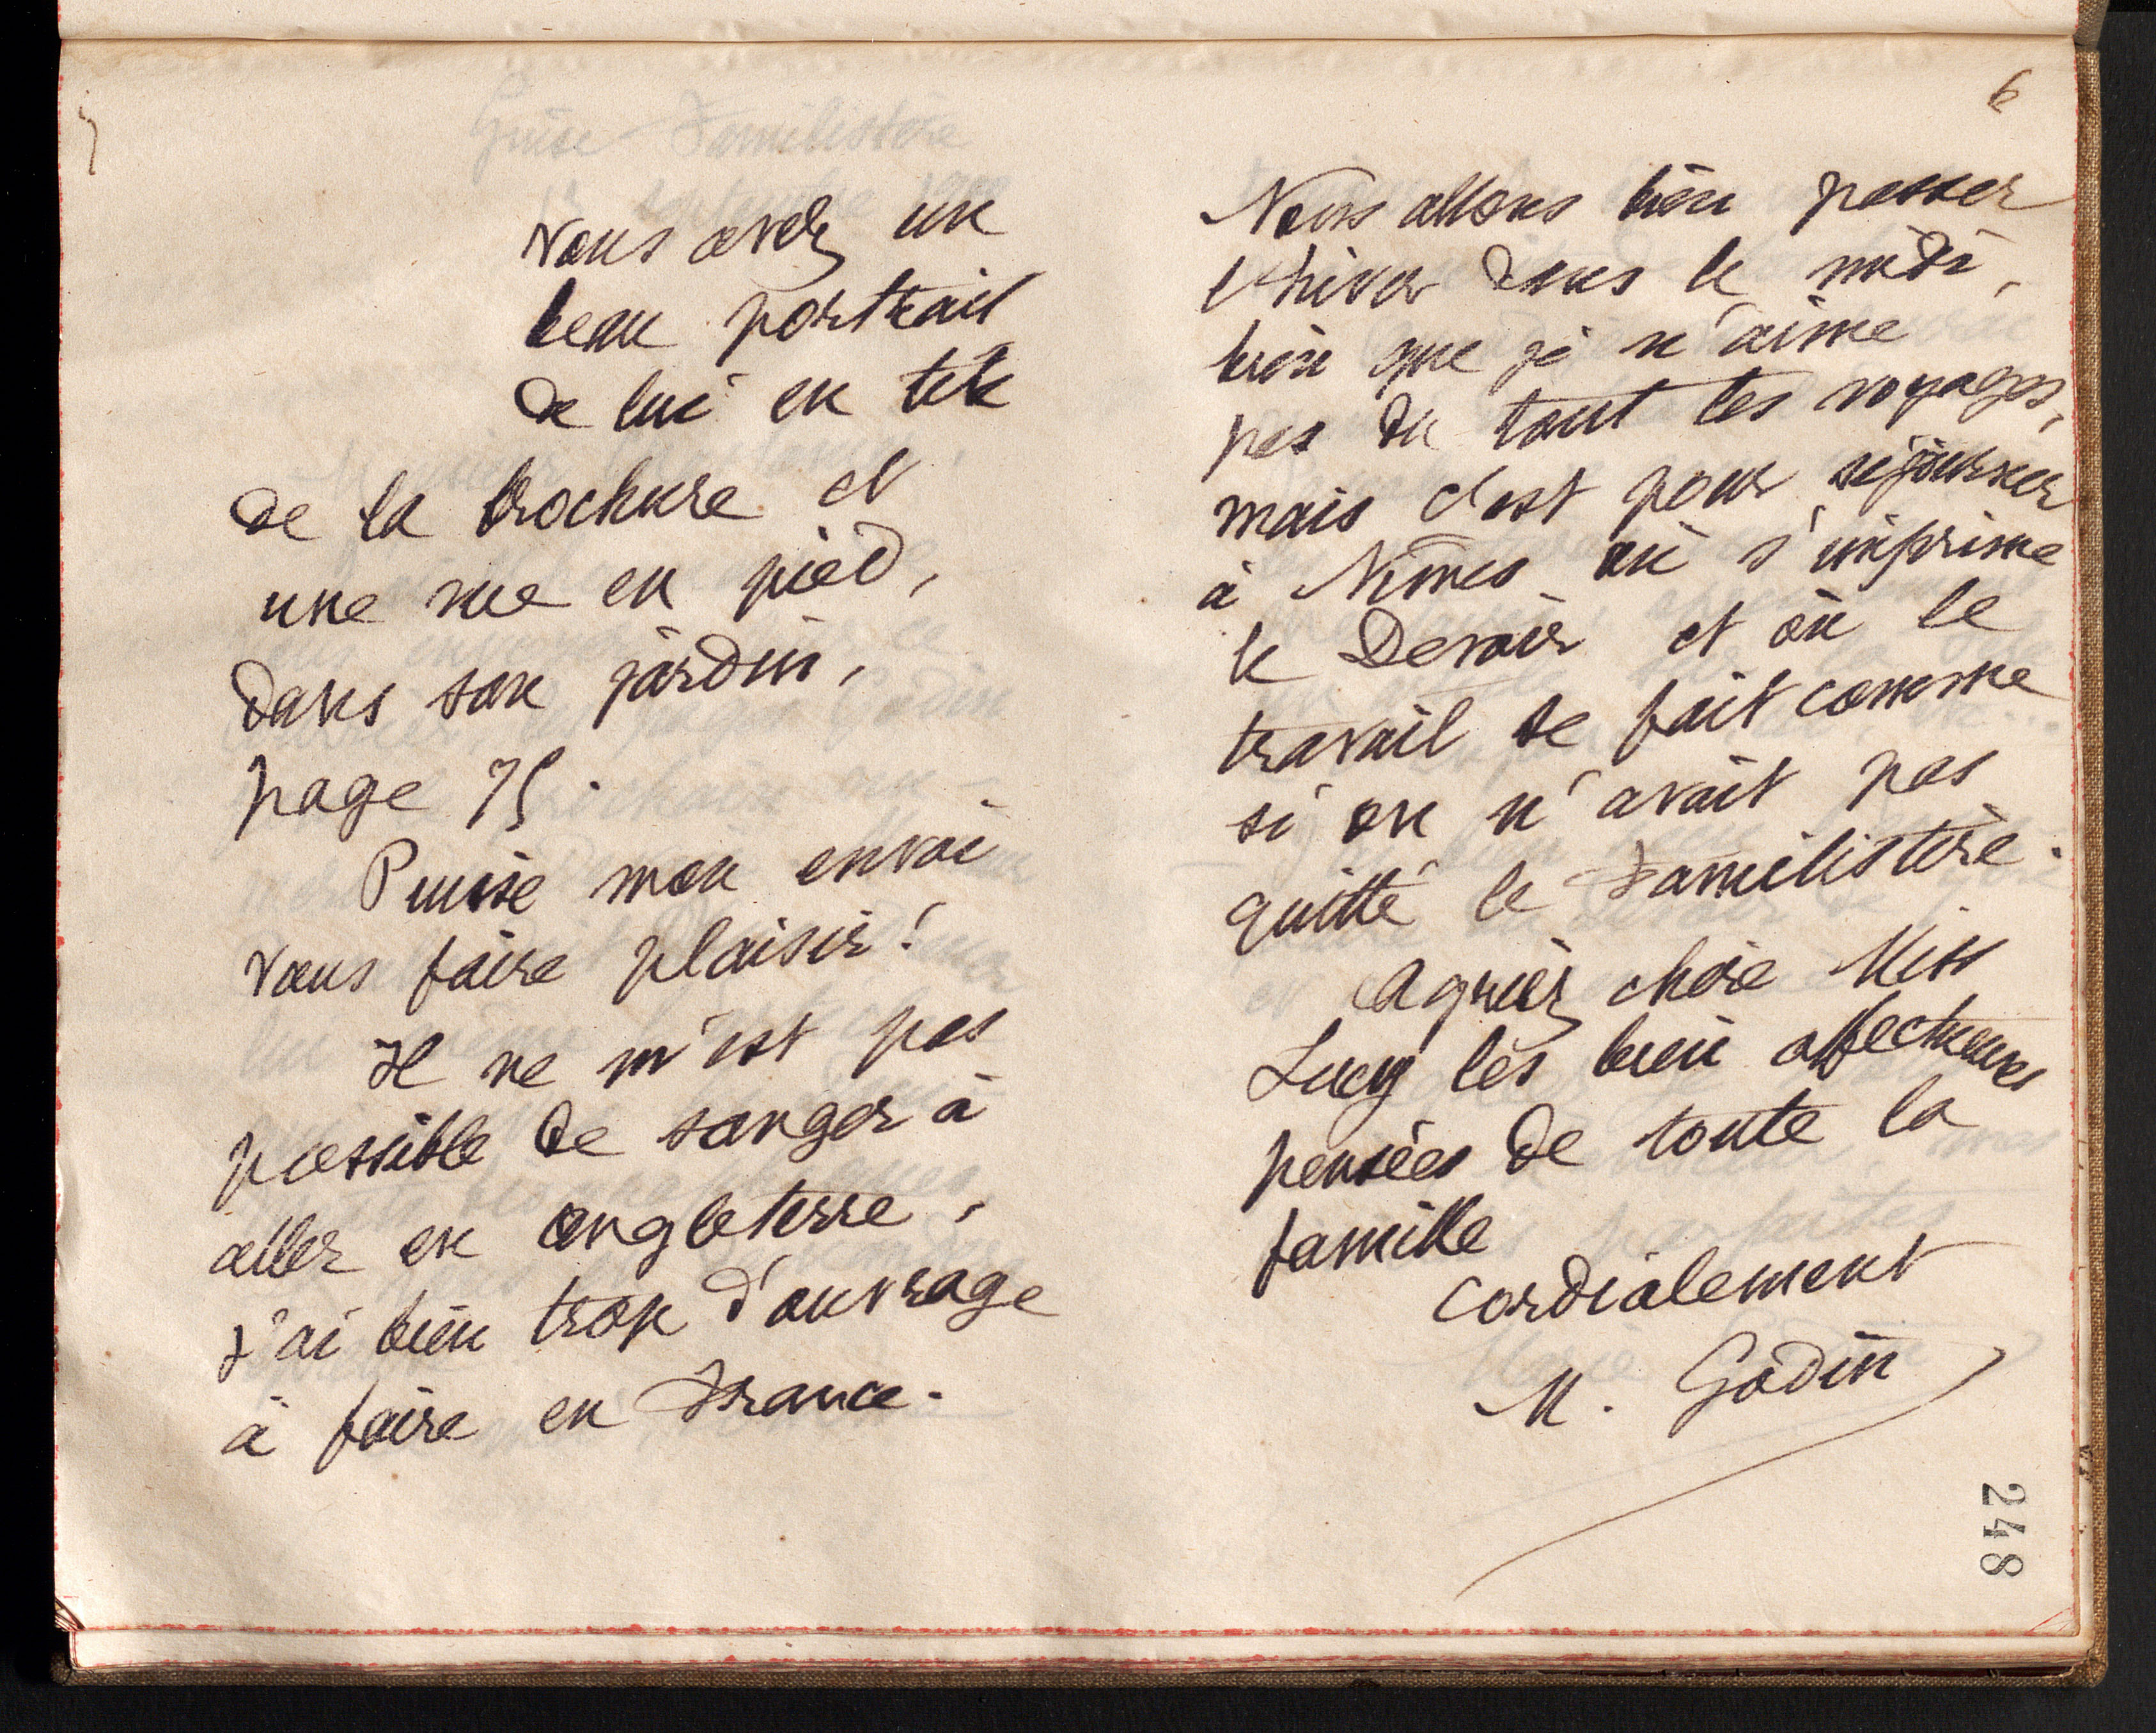 Vous avez un
beau portrait
de lui en tête
de la brochure et
une vue en pied,
dans son jardin,
page 75.
Puisse mon envoi
vous faire plaisir!
Il ne m'est pas
possible de songer à
aller en angleterre,
j'ai bien trop d'ouvrage
à faire en France.
6
Nous allons bien passer
l'hiver dans le midi,
bien que je n'aime
pas du tout les voyages,
mais c'est pour séjourner
à Nîmes où s'imprime
le Devoir et où le
travail se fait comme
si on n'avait pas
quitté le Familistère.
Agréez chère Miss
Lucy les bien affectueuses
pensées de toute la
famille
Cordialement
M. Godin
248